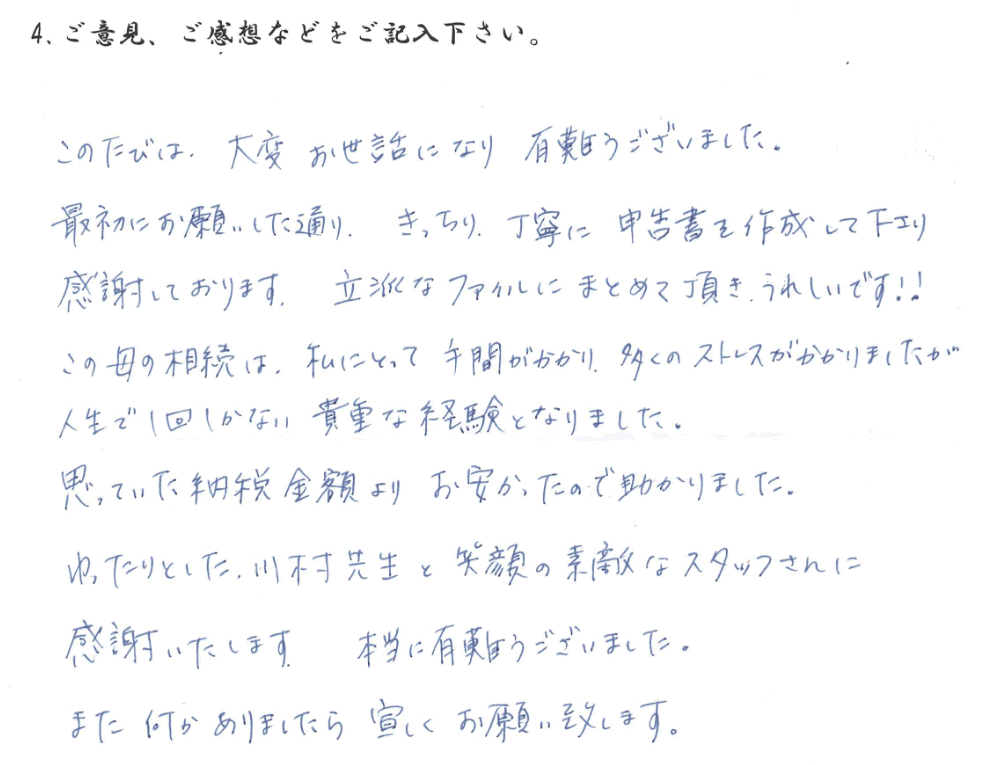 4、ご意見、ご感想などをご記入下さい。
このたびは、大変お世話になり 有難うございました。
最初にお願いした通り、きっちり、丁寧に 申告書を作成して下さり
感謝しております。 立派なファイルにまとめて頂き、うれしいです!!
この母の相続は、私にとって 手間がかかり、多くのストレスがかかりましたが
人生で1回しかない 貴重な経験となりました。
思っていた納税金額より お安かったので助かりました。
ゆったりとした、川村先生と 笑顔の素敵なスタッフさんに
感謝いたします 本当に有難うございました。
また 何かありましたら 宜しくお願い致します。